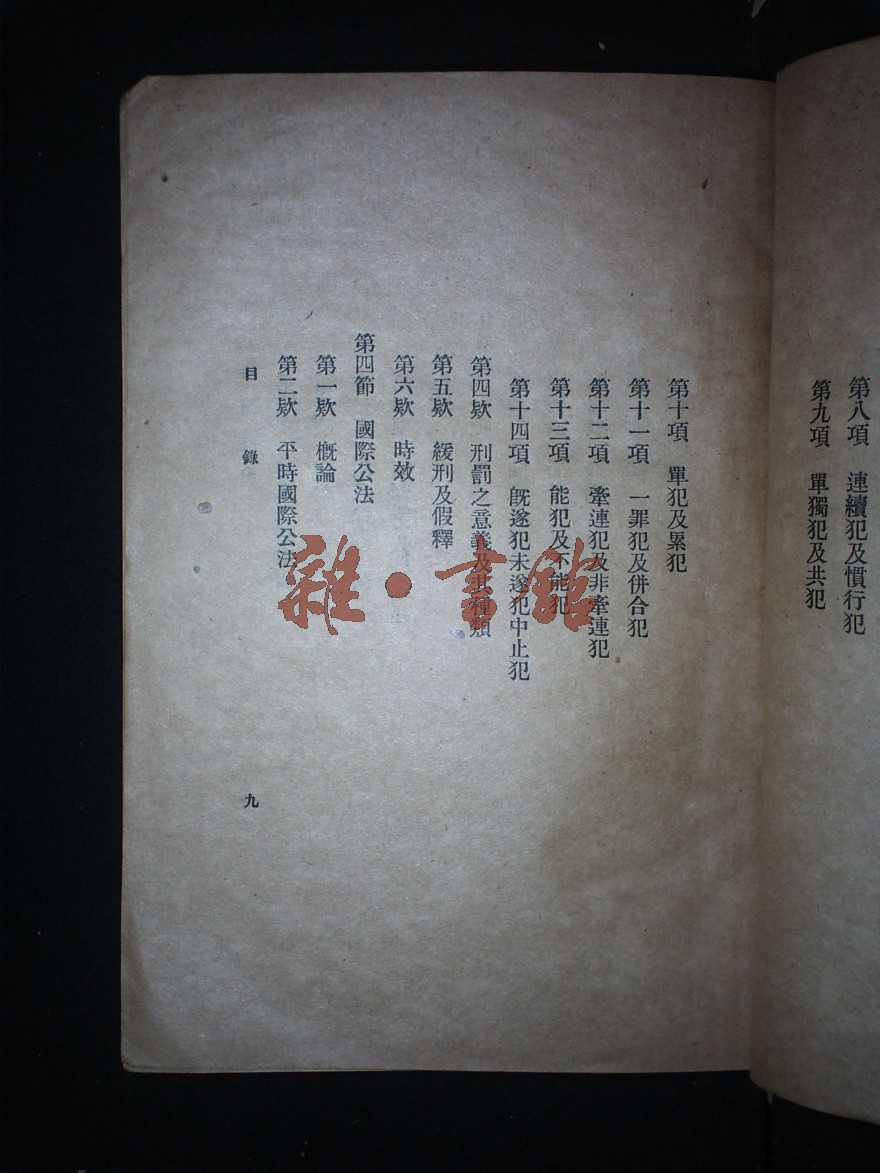 第八項　連續犯及慣行犯
第九項　單獨犯及共犯
第十項　單犯及累犯
第十一項　一罪犯及併合犯
第十二項　牽連犯及非牽連犯
第十三項　能犯及不能犯
第十四項　旣遂犯未遂犯中止犯
第四欵　刑罰之意義及其種類
第五欵　緩刑及假釋
第六欵　時效
第四節　國際公法
第一欵　槪論
第二欵　平時國際公法
目錄　九
雜·書館